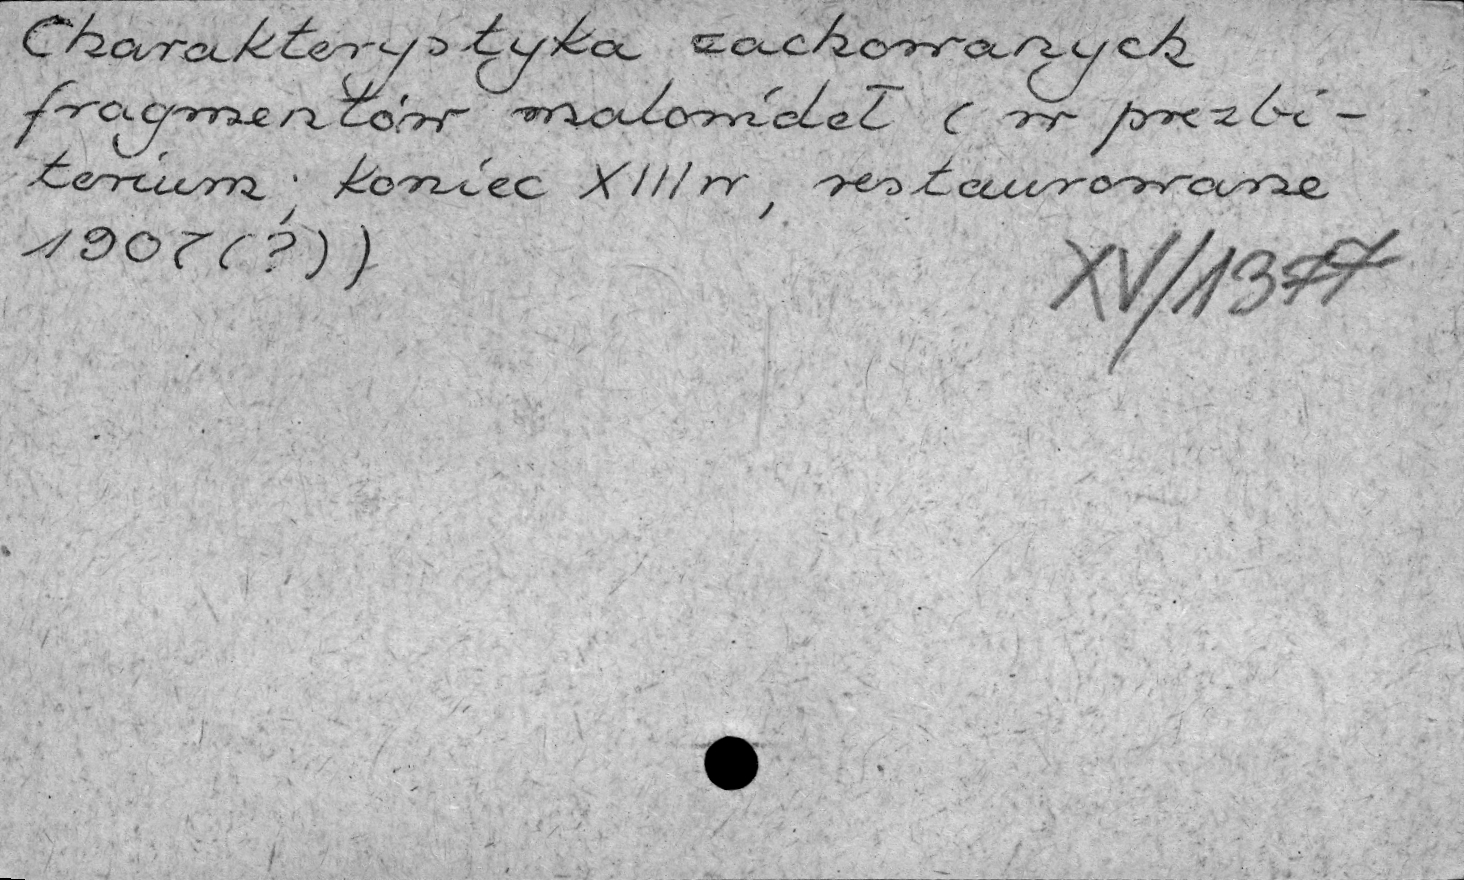 Charakterystyka zachowanych
fragmentów malowideł (w prezbi-
terium; koniec XIII w, restaurowane
1907(?))
XV/1377